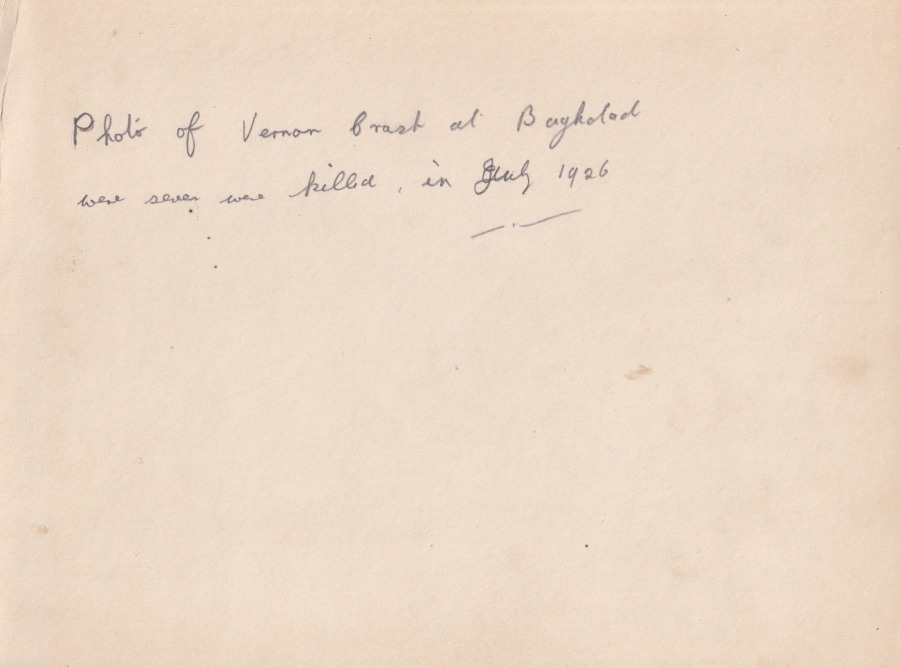 Photo of Vernon Crash at Baghdad
were seven were killed, in July 1926